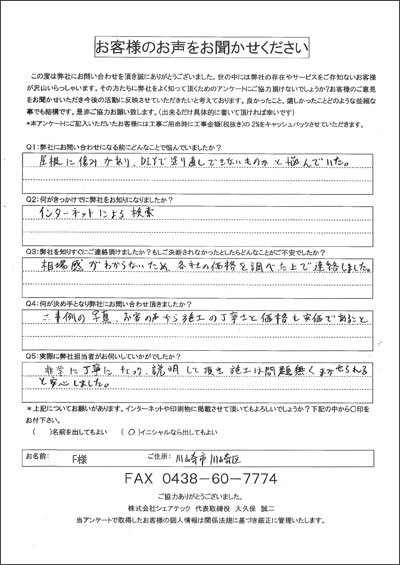 お客様のお声をお聞かせください
この度は弊社にお問い合わせを頂き誠にありがとうございました。世の中には弊社の存在やサービスをご存知ないお客様
が沢山いらっしゃいます。その方たちに弊社をよく知って頂くためのアンケートにご協力頂けないでしょうか?お客様のご意見
をお聞かせいただき今後の活動に反映させていただきたいと考えております。良かったこと、嬉しかったことどのような些細な
事でも結構です。是非ご協力お願い致します。(出来るだけ具体的に書いて頂ければ幸いです)
*本アンケートにご記入いただいたお客様には工事ご用命時に工事金額(税抜き)の2%をキャッシュバックさせていただきます。
Q1:弊社にお問い合わせになる前にどんなことで悩んでいましたか?
屋根に傷みがあり、DIYで塗り直しできないものかと悩んでいた。
Q2:何がきっかけでに弊社をお知りになりましたか?
インターネットによる検索
Q3:弊社を知りすぐにご連絡頂けましたか?もしご決断されなかったとしたらどんなことがご不安でしたか?
相場感がわからないため、各社の価格を調べた上で連絡しました。
Q4:何が決め手となり弊社にお問い合わせ頂きましたか?
工事例の写真、お客の声から施工の丁寧さと価格も安価であること
Q5:実際に弊社担当者がお伺いしていかがでしたか?
非常に丁寧にチェック、説明して頂き施工は問題無くまかせられる
と安心しました。
*上記についてお願いがあります。インターネットや印刷物に掲載させて頂いてもよろしいでしょうか?下記の中から〇印を
お付け下さい。
( )名前を出してもよい (〇)イニシャルなら出してもよい
お名前: F様 ご住所: 川崎市川崎区
FAX 0438-60-7774
ご協力ありがとうございました。
株式会社シェアテック 代表取締役 大久保 誠二
当アンケートで取得したお客様の個人情報は関係法規に基づき厳正に管理いたします。